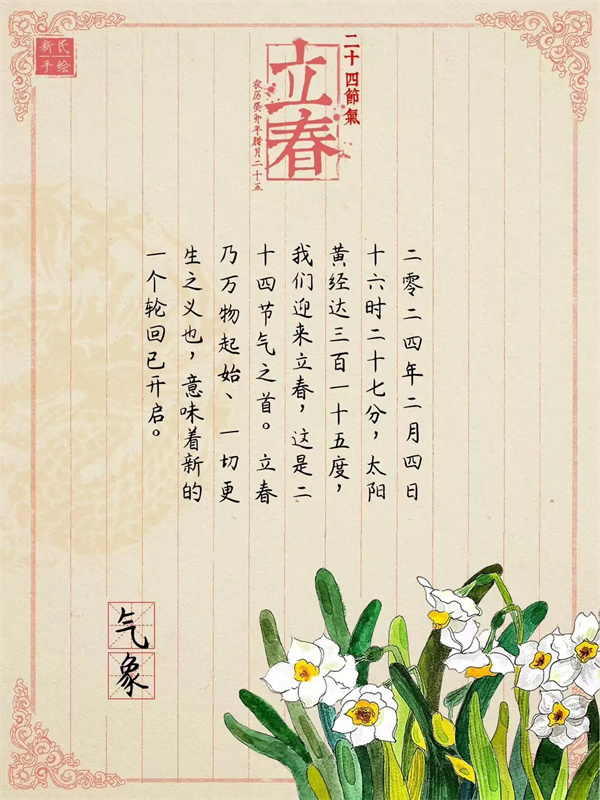 二十四節氣
立春
农历癸卯年腊月二十五
新氏
手绘
二零二四年二月四日
十六时二十七分，太阳
黄经达三百一十五度，
我们迎来立春，这是二
十四节气之首。立春
乃万物起始、一切更
生之义也，意味着新的
一个轮回已开启。
气象